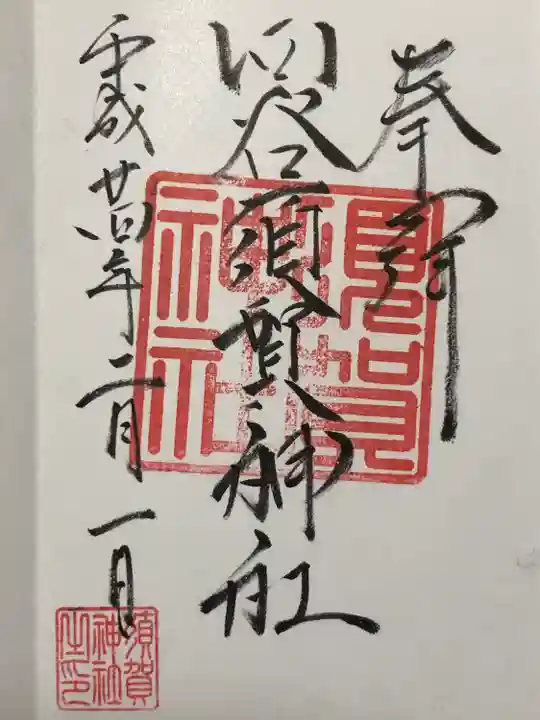 奉拝
四谷須賀神社
平成廿四年二月一日
須賀
神社
須賀
神社
之印